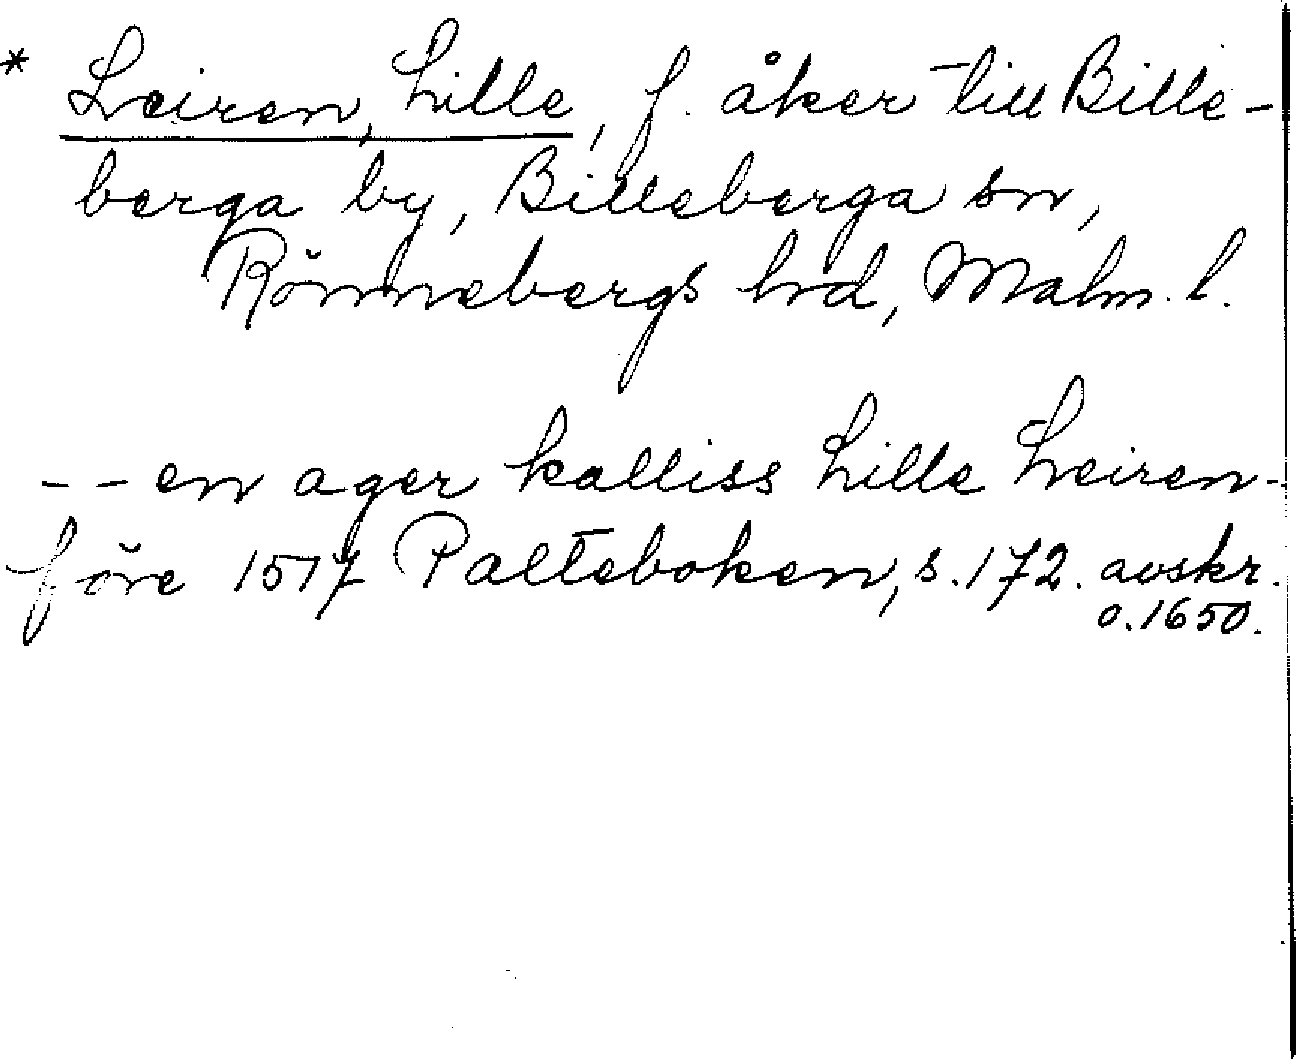 * Leiren, Lille, f. åker till Bille-
berga by, Billeberga sn,
Rönnebergs hd, Malm. l.
-- en ager kalliss Lille Leiren-
före 1517 Palteboken, s. 172. avskr.
o. 1650.